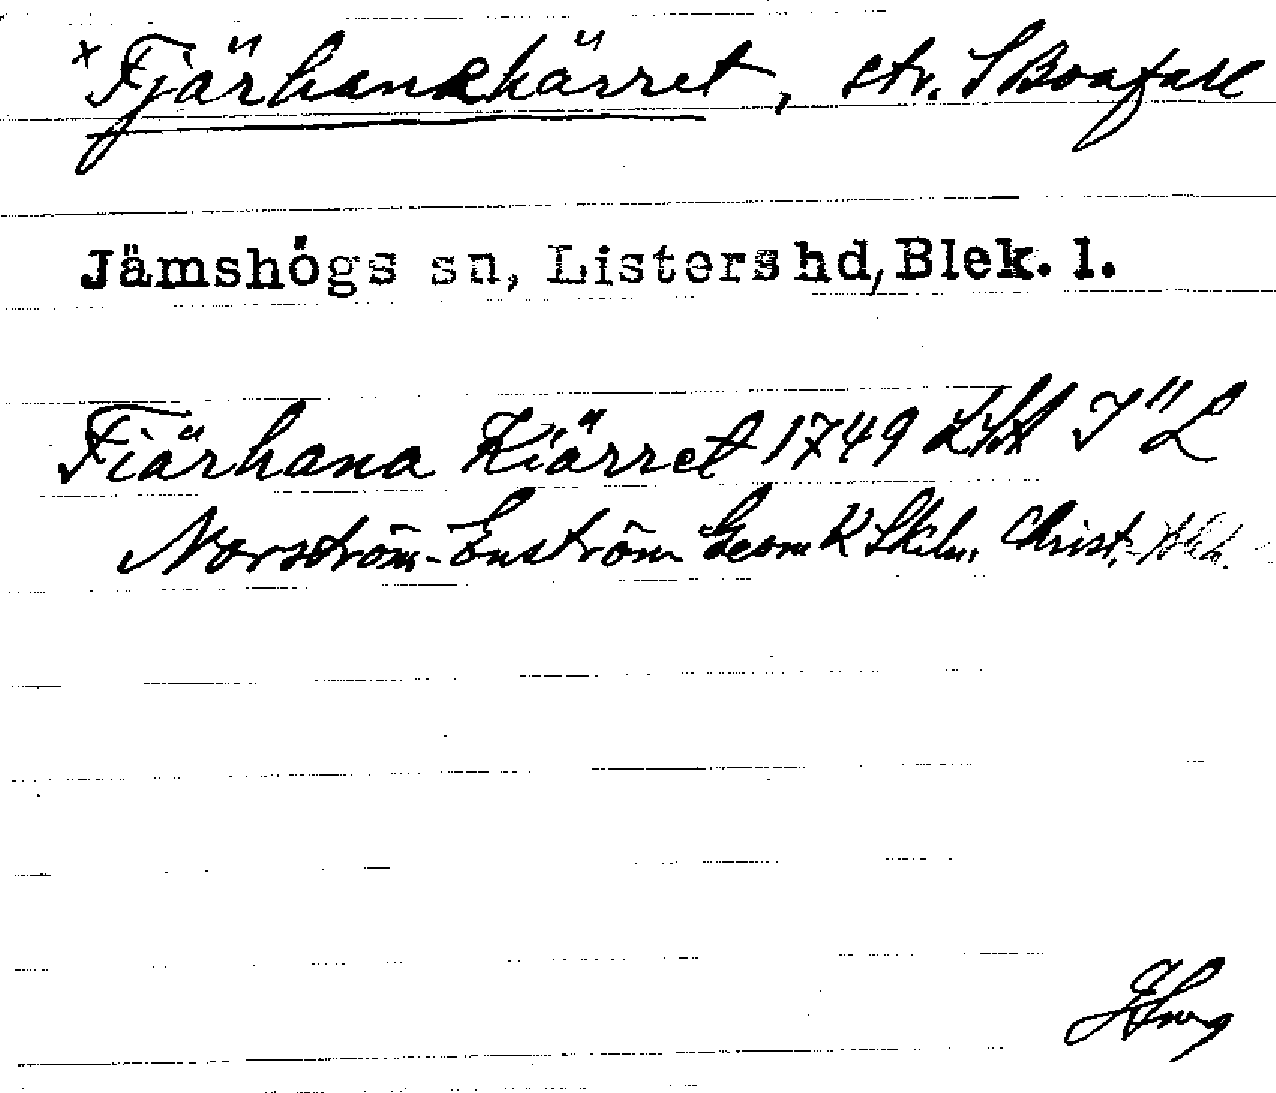 × Fjärhankärret, str. S Boafall
Jämshögs sn, Listers hd, Blek. l.
Fiärhana Kiärret 1749 LSA
Norström-Enström Geom K Christ.